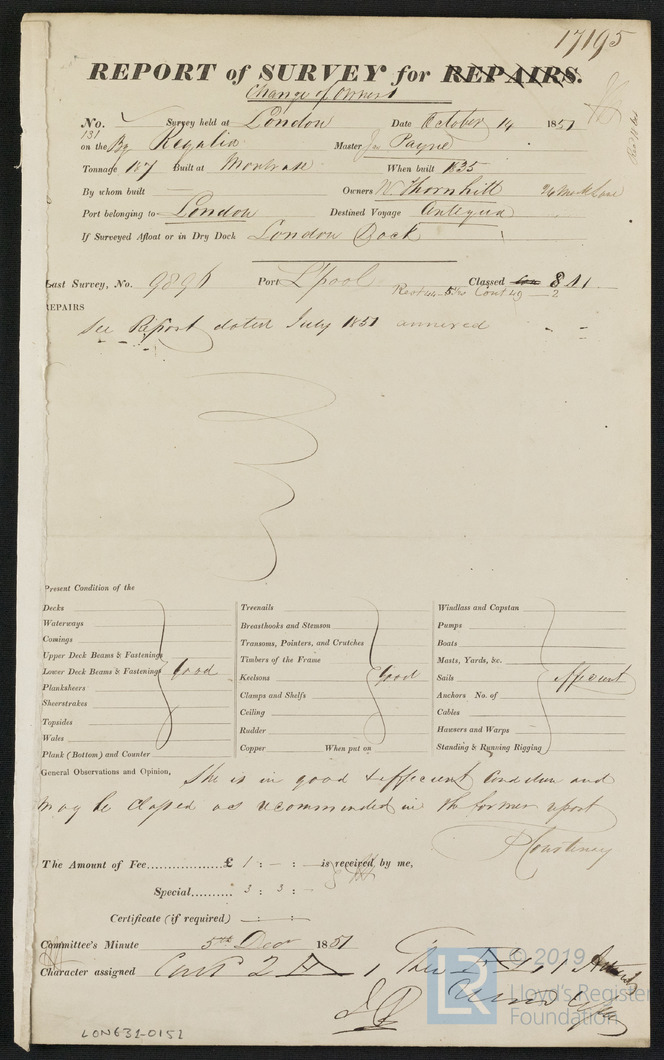 17195
REPORT of SURVEY for REPAIRS.
Change of Owners
No. 131 Survey held at London Date October 14 1851
on the Bg Regalia Master Jas Payne
Tonnage 187 Built at Montrose When built 1835
By whom built Owners W Thornhill
Port belonging to London Destined Voyage Antigua
If Surveyed Afloat or in Dry Dock London Dock
Last Survey, No. Port L'pool Classed
REPAIRS
See Report dated July 1851 annexed
Present Condition of the
Decks
Waterways
Comings
Upper Deck Beams & Fastenings
Lower Deck Beams & Fastenings Good
Planksheers
Sheerstrakes
Topsides
Wales
Plank (Bottom) and Counter
Treenails
Breasthooks and Stemson
Transoms, Pointers, and Crutches
Timbers of the Frame
Keelsons Good
Clamps and Shelfs
Ceiling
Rudder
Copper When put on
Windlass and Capstan
Pumps
Boats
Masts, Yards, &c.
Sails Efficient
Anchors No. of
Cables
Hawsers and Warps
Standing & Running Rigging
General Observations and Opinion, She is in good & efficient Condition and
may be Classed as recommended in the former report
P Courtenay
The Amount of Fee.................£ 1 : - : - is received by me,
Special.......... " 3 : 3 : -
Certificate (if required) - : - : -
Committee's Minute 5th Decr 1851
Character assigned Cont 2
© 2019
LR Lloyd's Register
Foundation
LON631-0151